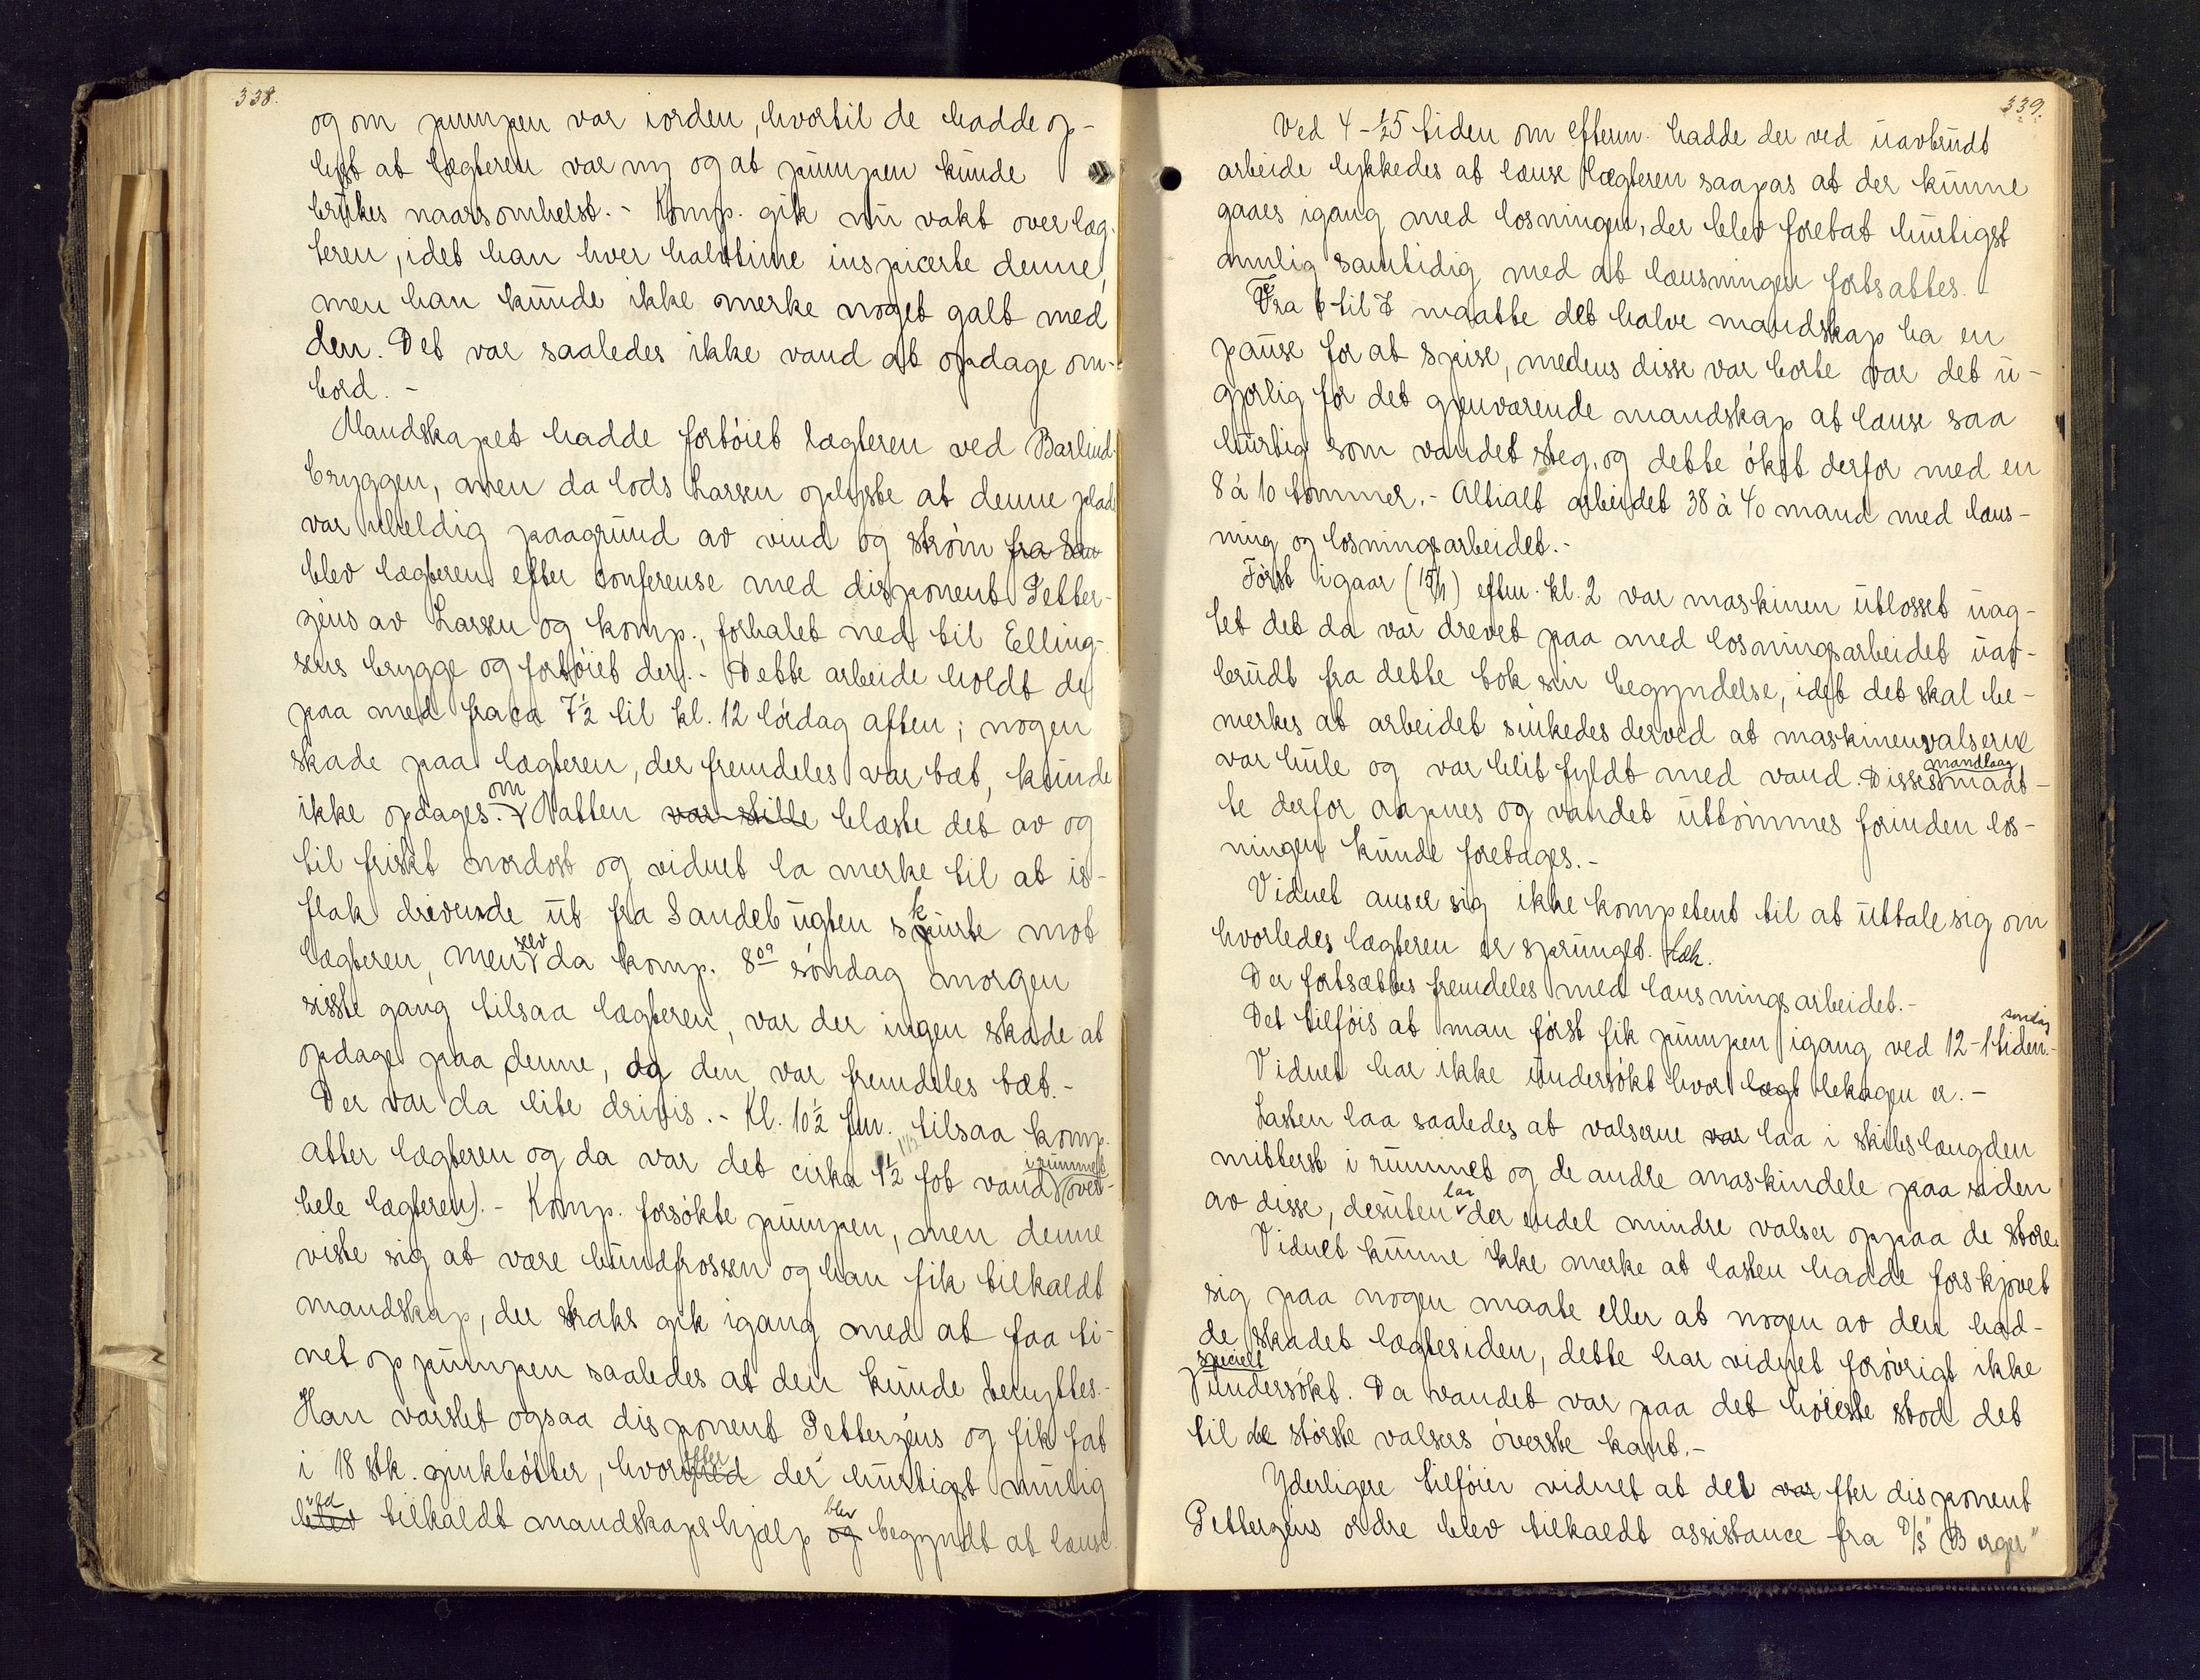 338.
og om pumpen var iorden, hvortil de hadde op-
lyst at lægteren var ny og at pumpen kunde
brukes naarsomhelst. - Komp. gik nu vakt over læg-
teren, idet han hver halvtime inspicerte denne,
men han kunde ikke merke noget galt med
den. Det var saaledes ikke vand at opdage om-
bord. -
Mandskapet hadde fortöiet lægteren ved Barlind-
bryggen, men da lods Larsen oplyste at denne plads
var uheldig paagrund av vind og ström fra San
blev lægteren efter conferense med disponent Petter-
zéns av Larsen og komp., forhalet ned til Elling-
sens brygge og fortöiet der. - Dette arbeide holdt de
paa med fra ca 7½ til kl. 12 lördag aften; nogen
skade paa lægteren, der fremdeles var tæt, kunde
ikke opdages. om Natten var stille blæste det av og
til friskt nordost og vidnet la merke til at is-
flak drivende ut fra Sandebugten skurte mot
lægteren, men selv da komp. 8 00 söndag morgen
sisste gang tilsaa lægteren, var der ingen skade at
opdage paa denne, og den var fremdeles tæt. -
Der var da lite drivis. - Kl. 10½ fm. tilsaa komp.
atter lægteren og da var det cirka 1½ fot vand i rummet (over-
hele lægteren). - Komp. forsökte pumpen, men denne
viste sig at være bundfrossen og han fik tilkaldt
mandskap, der straks gik igang med at faa ti-
net op pumpen saaledes at den kunde benyttes. -
Han varslet ogsaa disponent Petterzéns og fik fat
i 18 stk. zinkbötter, hvorefter der hurtigst mulig
ved blev tilkaldt mandskapshjælp blev og begyndt at lænse.
339.
Ved 4-½5 tiden om efterm. hadde der ved uavbrudt
arbeide lykkedes at lænse lægteren saapas at der kunne
gaaes igang med losningen, der blev foretat hurtigst
mulig samtidig med at lænsningen fortsattes.
Fra 6 til 7 maatte det halve mandskap ha en
pause for at spise, medens disse var borte var det u-
gjorlig for det gjenværende mandskap at lænse saa
hurtig som vandet steg, og dette ökte derfor med en
8 à 10 tommer. - Altialt arbeidet 38 à 40 mand med læns-
ning og losningsarbeidet. -
Först igaar (15/1) eftm. kl. 2 var maskinen utlosset uag-
tet det da var drevet paa med losningsarbeidet uav-
brudt fra dette tok sin begyndelse, idet det skal be-
merkes at arbeidet sinkedes derved at maskinenvalserne
var hule og var blit fyldt med vand. Disses mandlaag maat-
te derfor aapnes og vandet uttömmes forinden los-
ningen kunde foretages. -
Vidnet anser sig ikke kompetent til at uttale sig om
hvorledes lægteren er sprunget læk.
Der fortsættes fremdeles med lænsningsarbeidet. -
Det tilföis at man först fik pumpen igang ved 12-1 tiden söndag. -
Vidnet har ikke undersökt hvor lægt lekagen er. -
Lasten laa saaledes at valserne var laa i skibslængden
mitterst i rummet og de andre maskindele paa siden
av disse, desuten laa der endel mindre valser oppaa de store.
Vidnet kunne ikke merke at lasten hadde forskjövet
sig paa nogen maate eller at nogen av den had-
de skadet lægtesiden, dette har vidnet forövrigt ikke
specielt undersökt. Da vandet var paa det höieste stod det
til de störste valsers överste kant. -
Yderligere tilföier vidnet at det var efter disponent
Petterzéns ordre blev tilkaldt assistance fra D/S "Berger"